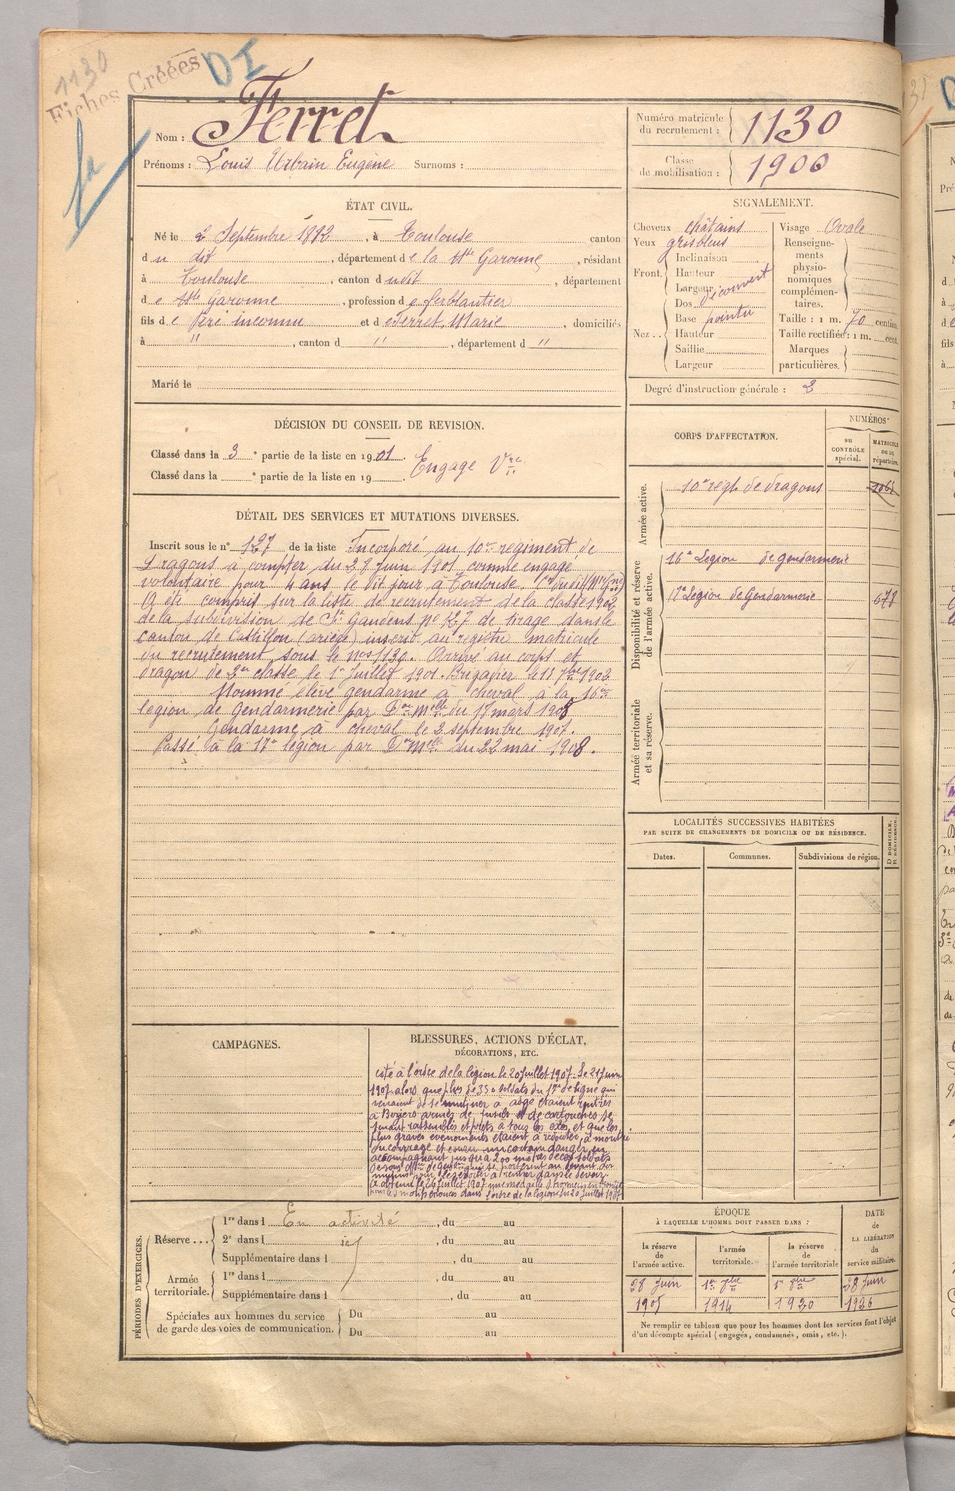 1130
Fiches Créées
DI
Nom : Ferret
Prénoms : Louis Urbain Eugène Surnoms :
Numéro matricule du recrutement : 1130
Classe de mobilisation : 1900
ÉTAT CIVIL.
Né le 2 Septembre 1882, à Toulouse canton
du dit, département de la Hte Garonne, résidant
à Toulouse, canton du dit, département
de Hte Garonne, profession de ferblantier
fils de Père inconnu et de Ferret, Marie, domiciliés
à ", canton d ", département d "
Marié le
SIGNALEMENT.
Cheveux châtains
Yeux gris bleus
Front. Inclinaison
Hauteur
Largeur découvert
Nez. Dos
Base pointu
Hauteur
Saillie
Largeur
Visage Ovale
Renseignements physionomiques complémentaires.
Taille : 1 m. 70 centim.
Taille rectifiée : 1 m. cent.
Marques particulières.
Degré d'instruction générale : 3
DÉCISION DU CONSEIL DE REVISION.
Classé dans la 3e partie de la liste en 1901. Engagé Vre
Classé dans la e partie de la liste en 19
CORPS D'AFFECTATION.
NUMÉROS
au CONTRÔLE spécial.
MATRICULE ou au répertoire.
Armée active.
10e régt de dragons
Disponibilité et réserve de l'armée active.
16e Légion de gendarmerie
17e Légion de Gendarmerie 678
Armée territoriale et sa réserve.
DÉTAIL DES SERVICES ET MUTATIONS DIVERSES.
Inscrit sous le n° 127 de la liste Incorporé au 10me régiment de
Dragons à compter du 27 juin 1901 comme engagé
volontaire pour 4 ans le dit jour à Toulouse.
A été compris sur la liste de recrutement de la classe 1902
de la subdivision de St Gaudens n° 127 de tirage dans le
canton de Castillon (ariège) inscrit au registre matricule
du recrutement sous le n° 1130. Arrivé au corps et
dragon de 2me classe le 1er Juillet 1901. Brigadier le
Nommé élève gendarme à cheval à la 16me
légion de Gendarmerie par Don Melle du 17 mars 1905
Gendarme à cheval le 2 septembre 1907.
Passé à la 17e légion par Don Melle du 22 mai 1908.
LOCALITÉS SUCCESSIVES HABITÉES
PAR SUITE DE CHANGEMENTS DE DOMICILE OU DE RÉSIDENCE.
Dates.
Communes.
Subdivisions de région.
D DOMICILE, R RÉSIDENCE.
CAMPAGNES.
BLESSURES, ACTIONS D'ÉCLAT,
DÉCORATIONS, ETC.
Cité à l'ordre de la légion le 20 juillet 1907. Le 21 Juin
1907 alors que plus de 350 soldats du 17e de ligne qui
venaient de se mutiner à Agde étaient rentrés
à Béziers armés de fusils et de cartouches se
tenant rassemblés et prêts à tous les excès, et que les
plus graves évènements étaient à redouter, a montré
du courage et couru un certain danger en
accompagnant jusqu'à 200 mètres de ces soldats
son
a obtenu le 24 juillet 1907 une médaille d'honneur en
pour les motifs énoncés dans l'ordre de la légion du 20 juillet 1907
PÉRIODES D'EXERCICES.
Réserve...
1re dans l En activité, du au
2e dans l , du au
Supplémentaire dans l , du au
Armée territoriale.
1re dans l , du au
Supplémentaire dans l , du au
Spéciales aux hommes du service de garde des voies de communication.
Du au
Du au
ÉPOQUE
À LAQUELLE L'HOMME DOIT PASSER DANS :
la réserve de l'armée active.
l'armée territoriale.
la réserve de l'armée territoriale
DATE de LA LIBÉRATION du service militaire.
28 Juin 1905
1er 8bre 1914
1er 8bre 1920
28 Juin 1926
Ne remplir ce tableau que pour les hommes dont les services font l'objet
d'un décompte spécial (engagés, condamnés, omis, etc.).